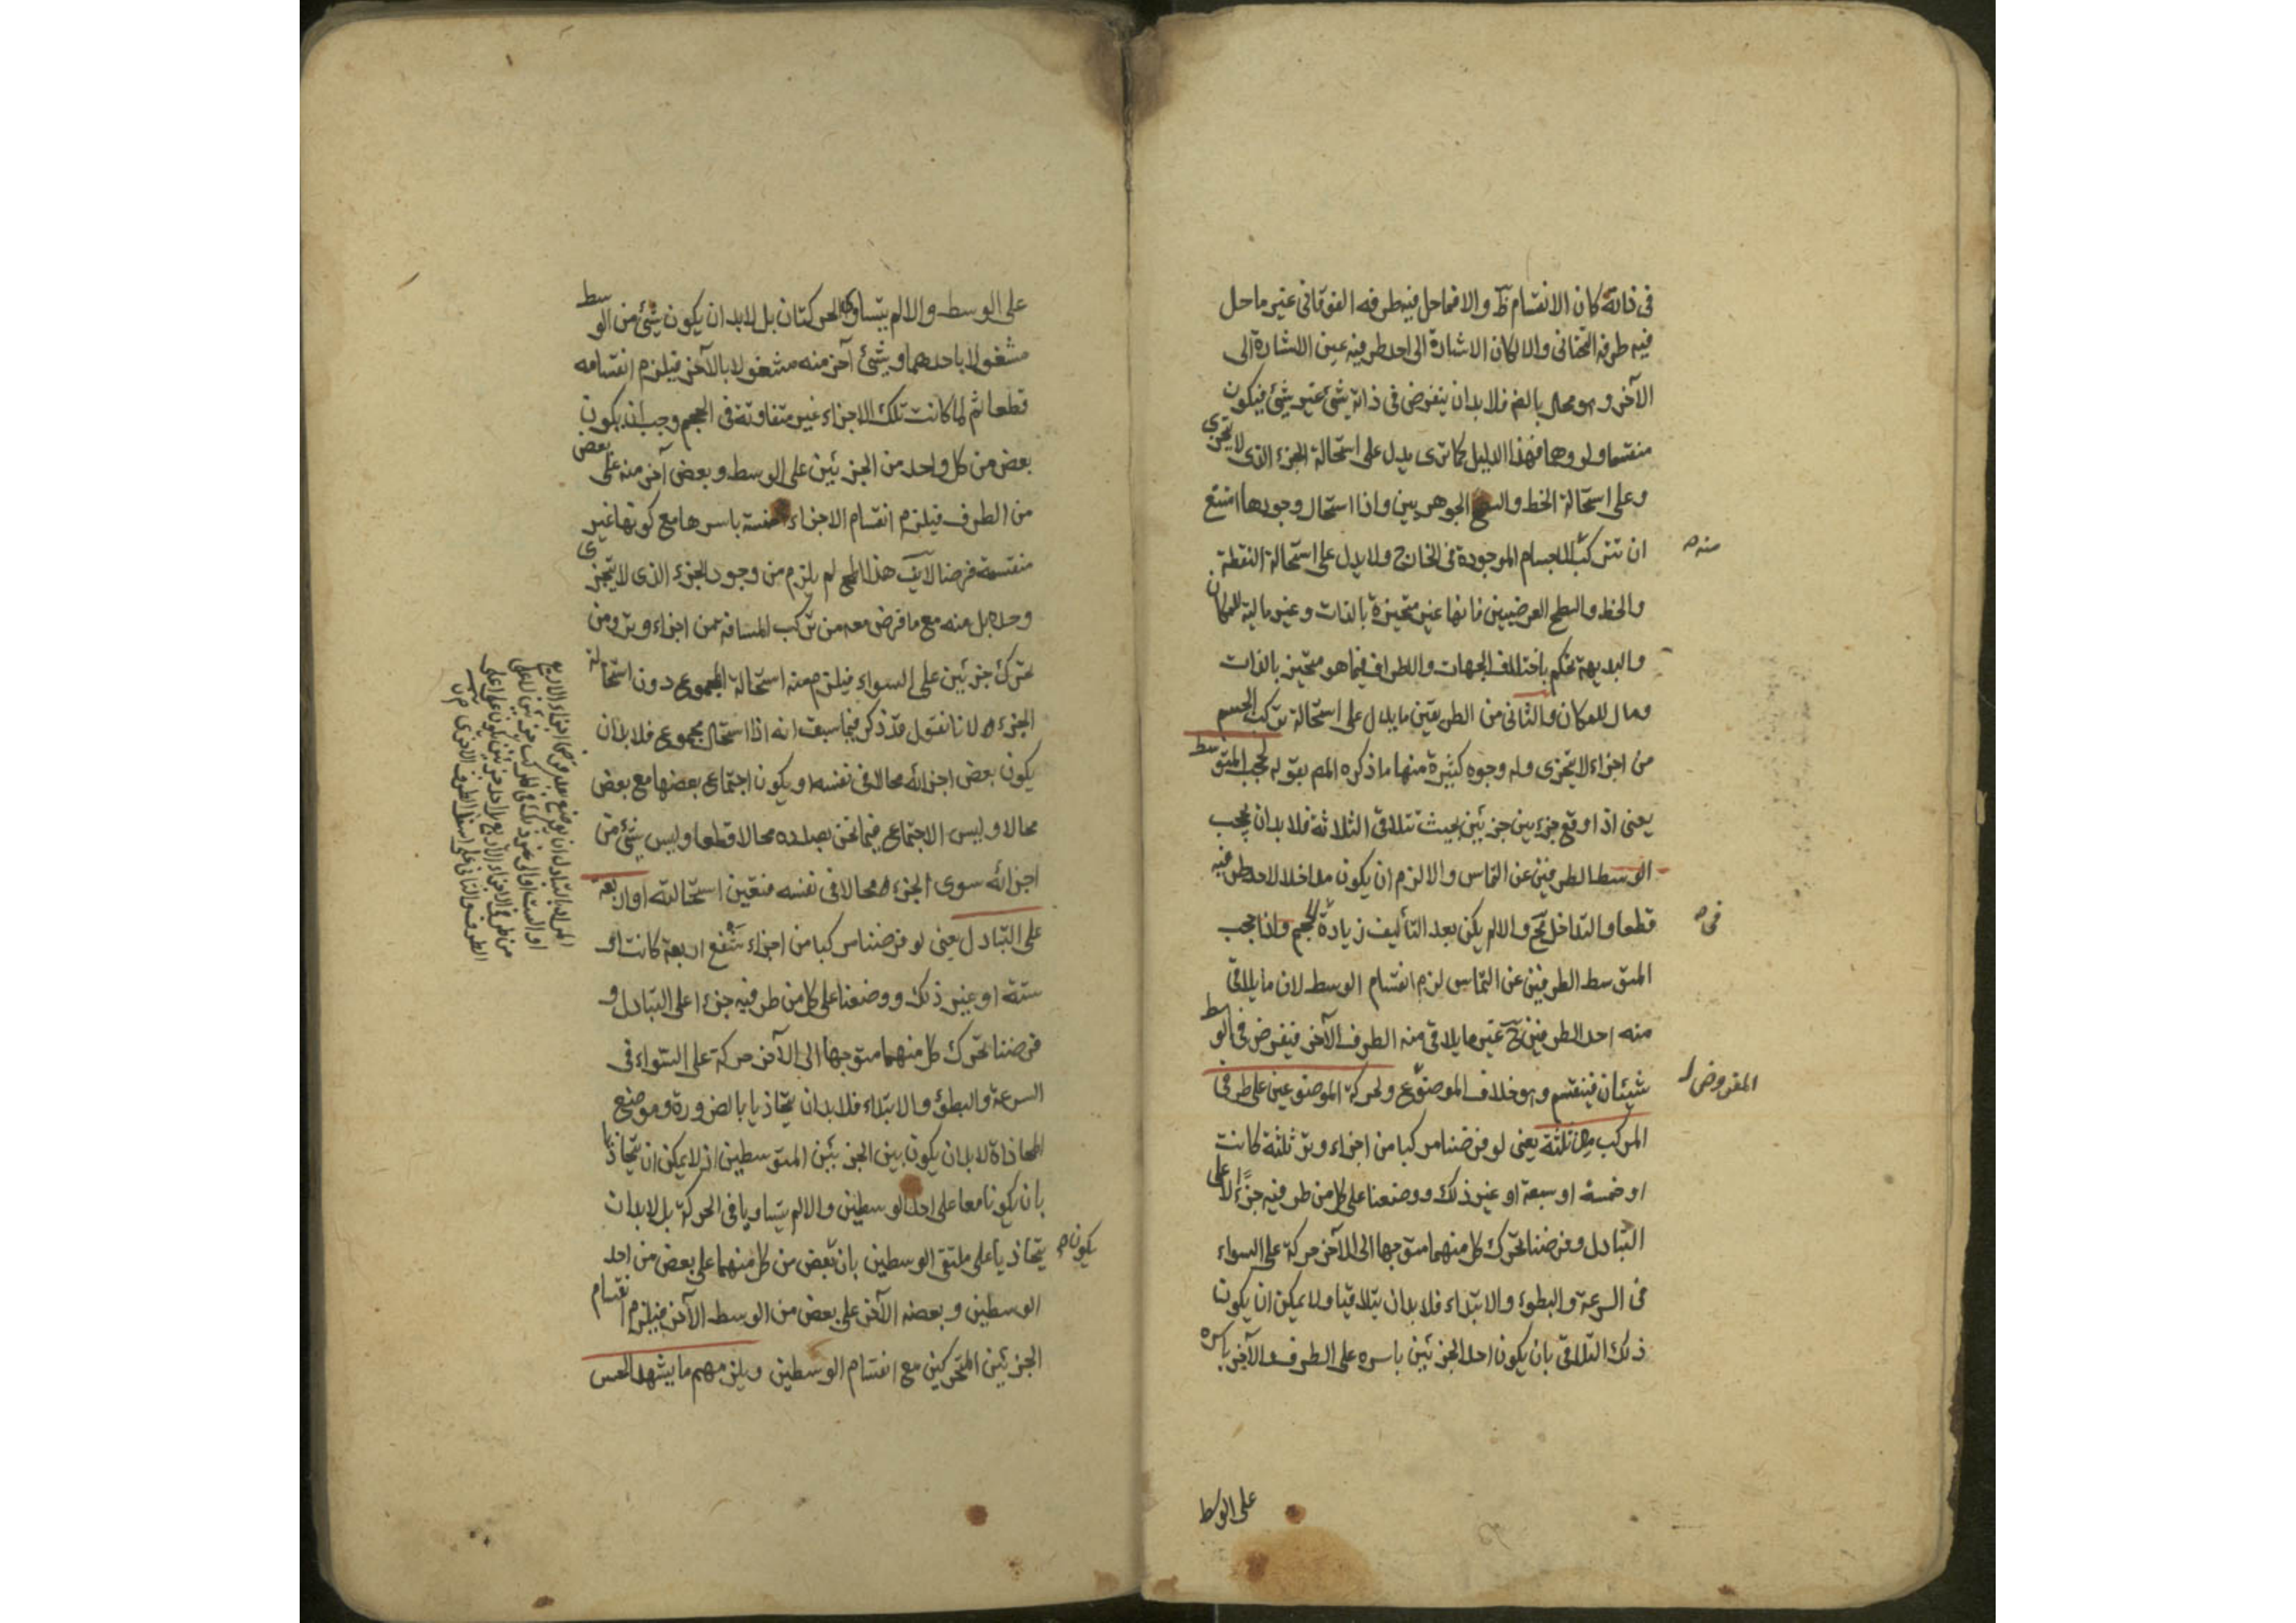 فى ذاته كان الانقسام ظ والا فما حل فيه طرفه الفوقانى غير ما حل
فيه طرفه التحتانى والا لكان الاشارة الى احد طرفيه عين الاشارة الى
الآخر وهو محال بالضر فلا بد ان يتفرض فى ذاته شئ غير شئ فيكون
منقسما ولو وهما فهذا الدليل كما ترى يدل على استحالة الجزء الذى لا يتجزى
وعلى استحالة الخط والسطح الجوهريين واذا استحال وجودها امتنع
ان تتركب الاجسام الموجودة فى الخارج ولا يدل على استحالة النقطة
منه
والخط والسطح العرضيين فانها غير متحيزة بالذات وغير مالية للمكان
والبديهة تحكم باختلاف الجهات والاطراف فيما هو متحيز بالذات
ومال للمكان والثانى من الطريقين ما يدل على استحالة تركب الجسم
من اجزاء لا تتجزى وله وجوه كثيرة منها ما ذكره المص بقوله لحجب المتوسط
يعنى اذا وقع جزء بين جزئين بحيث تتلاقى الثلاثة فلا بد ان يحجب
الوسط الطرفين عن التماس والا لزم ان يكون مداخلا لاحد طرفيه
قطعا والتداخل مح والا لم يكن بعد التأليف زيادة الحجم واذا حجب
فى
المتوسط الطرفين عن التماس لزم انقسام الوسط لان ما يلاقى
منه احد الطرفين ح غير ما يلاقى منه الطرف الآخر فيفرض فى الوسط
شيئان فينقسم وهو خلاف الموضوع ولحركة الموضوعين على طرفى
المفروض
المركب من ثلثة يعنى لو فرضنا مركبا من اجزاء وتر ثلثة كانت
او خمسة او سبعة او غير ذلك ووضعنا على كل من طرفيه جزءا على
التبادل وفرضنا تحرك كل منهما متوجها الى الآخر حركة على السواء
فى السرعة والبطوء والابتداء فلا بد ان يتلاقيا ولا يمكن ان يكون
ذلك التلاقى بان يكون احد الجزئين باسره على الطرف والآخر باسره
على الوسط
على الوسط والا لم يتساو الحركتان بل لا بد ان يكون شئ من الوسط
مشغولا باحدهما وشئ آخر منه مشغولا بالآخر فيلزم انقسامه
قطعا ثم لما كانت تلك الاجزاء غير متفاوتة فى الحجم وجب ان يكون
بعض من كل واحد من الجزئين على الوسط وبعض آخر منه على بعض
من الطرف فيلزم انقسام الاجزاء الخمسة باسرها مع كونها غير
منقسمة فرضا لا يق هذا المح لم يلزم من وجود الجزء الذى لا يتجزى
وحده بل منه مع ما فرض معه من تركب المسافة من اجزاء وتر ومن
تحرك جزئين على السواء فيلزم منه استحالة المجموع دون استحالة
الجزء لانا نقول قد ذكر فيما سبق انه اذا استحال مجموع فلا بد ان
يكون بعض اجزائه محالا فى نفسه او يكون اجتماع بعضها مع بعض
محالا وليس الاجتماع فيما نحن بصدده محالا قطعا وليس شئ من
اجزائه سوى الجزء محالا فى نفسه فتعين استحالته او اربعة
على التبادل يعنى لو فرضنا مركبا من اجزاء شفع اربعة كانت او
ستة او غير ذلك ووضعنا على كل من طرفيه جزءا على التبادل و
فرضنا تحرك كل منهما متوجها الى الآخر حركة على السواء فى
السرعة والبطؤ والابتداء فلا بد ان يتحاذيا بالضرورة وموضع
المحاذاة لا بد ان يكون بين الجزئين المتوسطين اذ لا يمكن ان يتحاذيا
بان يكونا معا على احد الوسطين والا لم يتساويا فى الحركة بل لا بد ان
يتحاذيا على ملتقى الوسطين بان بعض من كل منهما على بعض من احد
يكون
الوسطين وبعضه الآخر على بعض من الوسط الآخر فيلزم انقسام
الجزئين المتحركين مع انقسام الوسطين ويلزمهم ما يشهد الحس